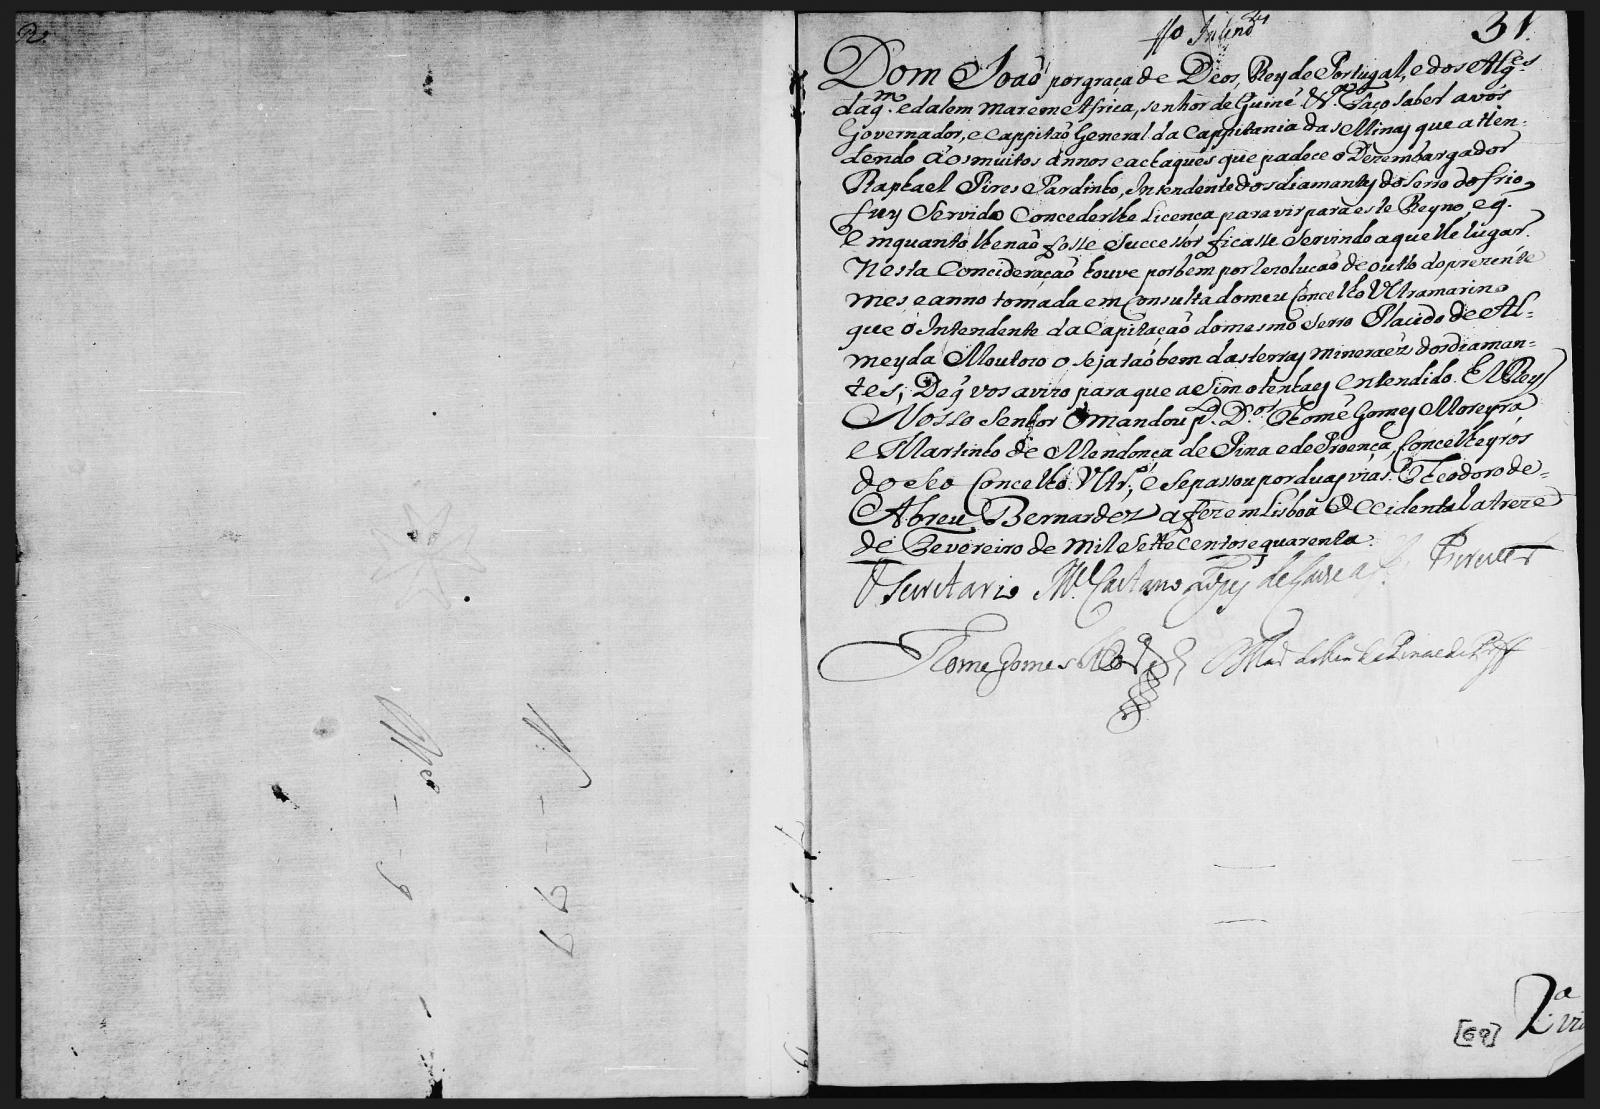 R.
31.
Dom Joaõ por graça de Deos, Rey de Portugal, e dos Alg.es
daq.m e dalem mar em Africa, senhor de Guiné &.ª Faço saber a vós
Governador, e Cappitaõ General da Cappitania das Minas que atten-
dendo aos muitos annos e achaques que padece o Dezembargador
Raphael Pires Pardinho, Intendente dos diamantes do Serro do frio,
fuy Servido Concederlhe Licença para vir para este Reyno, e q.
emquanto lhe naõ fosse Successor ficasse Servindo aquelle lugar.
Nesta Concideraçaõ houve por bem por rezoluçaõ de outto do prezente
mes e anno tomada em Consulta do meu Concelho Ultramarino
que o Intendente da Capitaçaõ do mesmo Serro Placido de Al-
meyda Moutozo o seja taõ bem das terras mineraes dos diaman-
tes; De q vos avizo para que asim o tenhaes entendido. El Rey
Nosso Senhor o mandou p.los D.os Thomé Gomes Moreyra
e Martinho de Mendonça de Pina e de Proença, Concelheyros
do seo Concelho Ultr.º, e se passou por duas vias. Theodoro de
Abreu Bernardez a fez em Lisboa Occidental a treze
de Fevereiro de mil sette centos e quarenta.
O Secretario M.el Caetano Lopes de Lavre a fez escrever
Thome Gomes Mor.ª
Mart.º de Men.ça de Pina e de Pr.ça
N
99
[69]
2.ª via